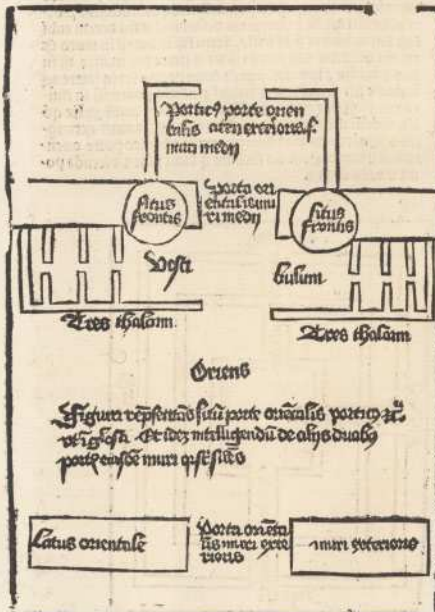 Porticꝰ porte orien
talis atrii exterioris s.
muri medii
situs
frontis
Porta ori
entalis mu
ri medii
situs
frontis
Vesti
bulum
Tres thalami
Tres thalami
Oriens
Figura rep̄sentans situ porte orientalis porticꝰ
vt i glosa. Et idez intelligendū de aliis duabꝰ
eiusdē muri
Latus orientale
Porta oriēta
lis muri exte
rioris
muri exterioris